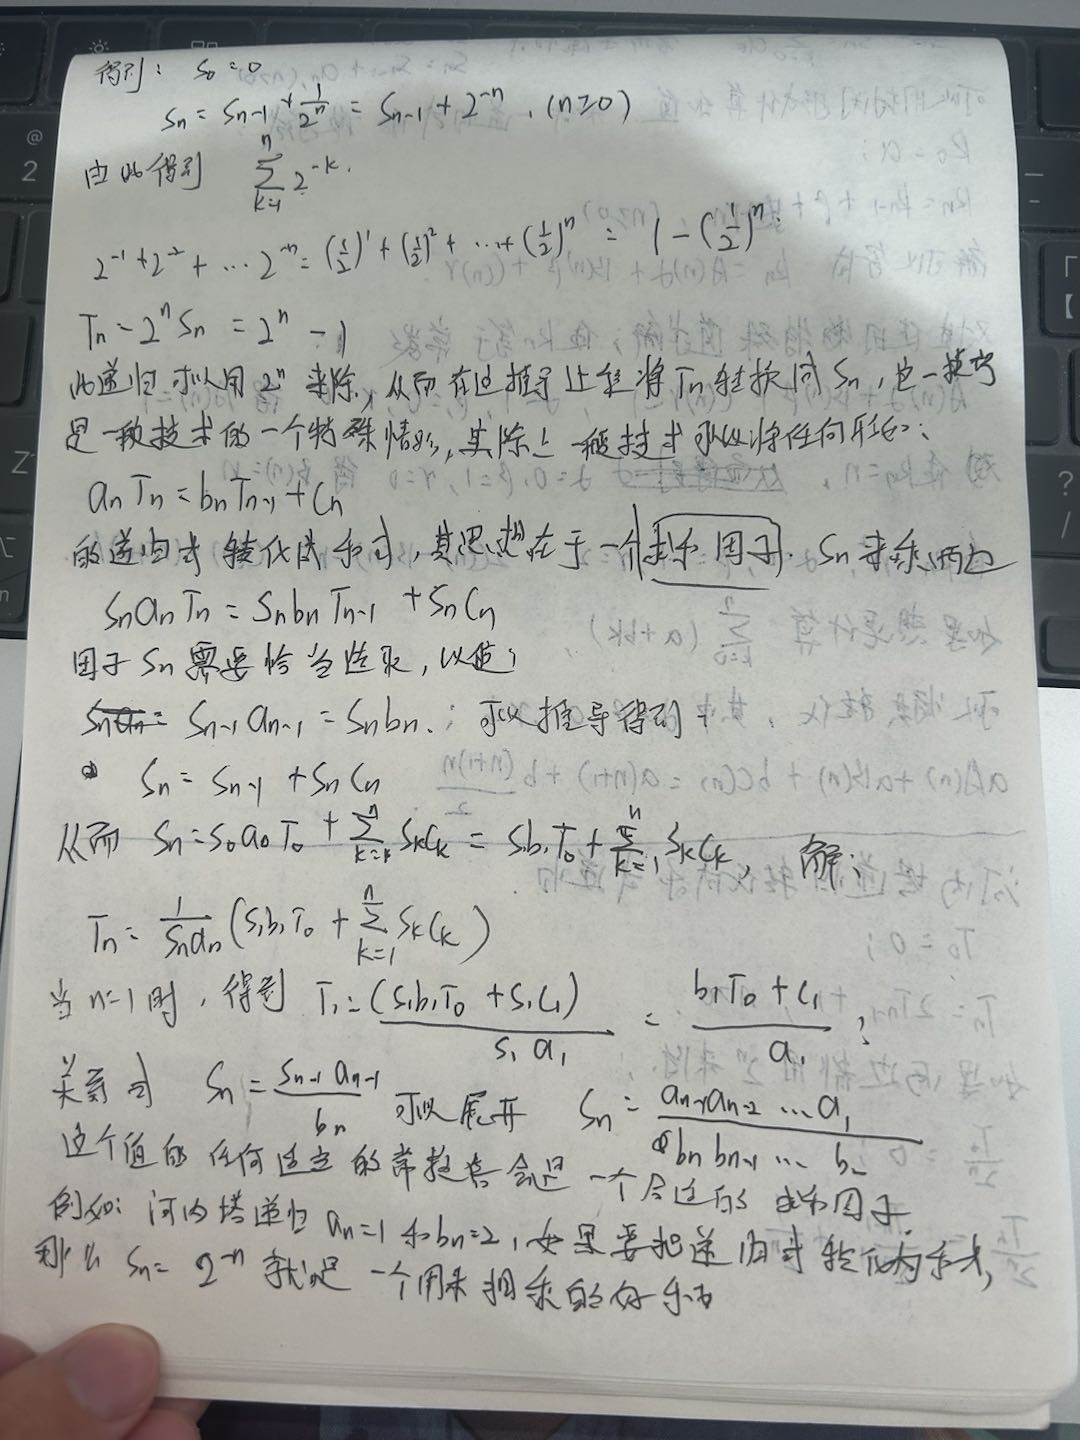 得到: S₀=0
Sn = Sn-1 + 1/2ⁿ = Sn-1 + 2⁻ⁿ, (n≥0)
由此得到 ∑_{k=1}^{n} 2⁻ᵏ.
2⁻¹+2⁻²+ ⋯ 2⁻ⁿ = (1/2)¹ + (1/2)² + ⋯ + (1/2)ⁿ = 1 - (1/2)ⁿ.
Tn = 2ⁿ Sn = 2ⁿ - 1
此递归可以用 2ⁿ 来除, 从而在过推导 将 Tn 转换同 Sn, 也一技巧
是一般技术的一个特殊情形, 实际上一般技术可以将任何形如:
an Tn = bn Tn-1 + Cn
的递归式转化成和式, 其思想在于一个求和因子. Sn 来乘两边
Sn an Tn = Sn bn Tn-1 + Sn Cn
因子 Sn 需要恰当选取, 以使:
Sn-1 an-1 = Sn bn. ; 可以推导得到:
Sn = Sn-1 + Sn Cn
从而 Sn = S₀ a₀ T₀ + ∑_{k=1}^{n} Sk Ck = S₁ b₁ T₀ + ∑_{k=1}^{n} Sk Ck, 解:
Tn = 1/(Sn an) (S₁ b₁ T₀ + ∑_{k=1}^{n} Sk Ck)
当 n=1 时, 得到 T₁ = (S₁ b₁ T₀ + S₁ C₁)/(S₁ a₁) = (b₁ T₀ + C₁)/a₁ ;
关系式 Sn = (Sn-1 an-1)/bn 可以展开 Sn = (an-1 an-2 ⋯ a₁)/(bn bn-1 ⋯ b₂)
这个值的任何适当的常数 会是一个合适的求和因子
例如: 河内塔递归 an=1 和 bn=2, 如果要把递归式转化为和式,
那么 Sn = 2⁻ⁿ 就是一个用来相乘的好